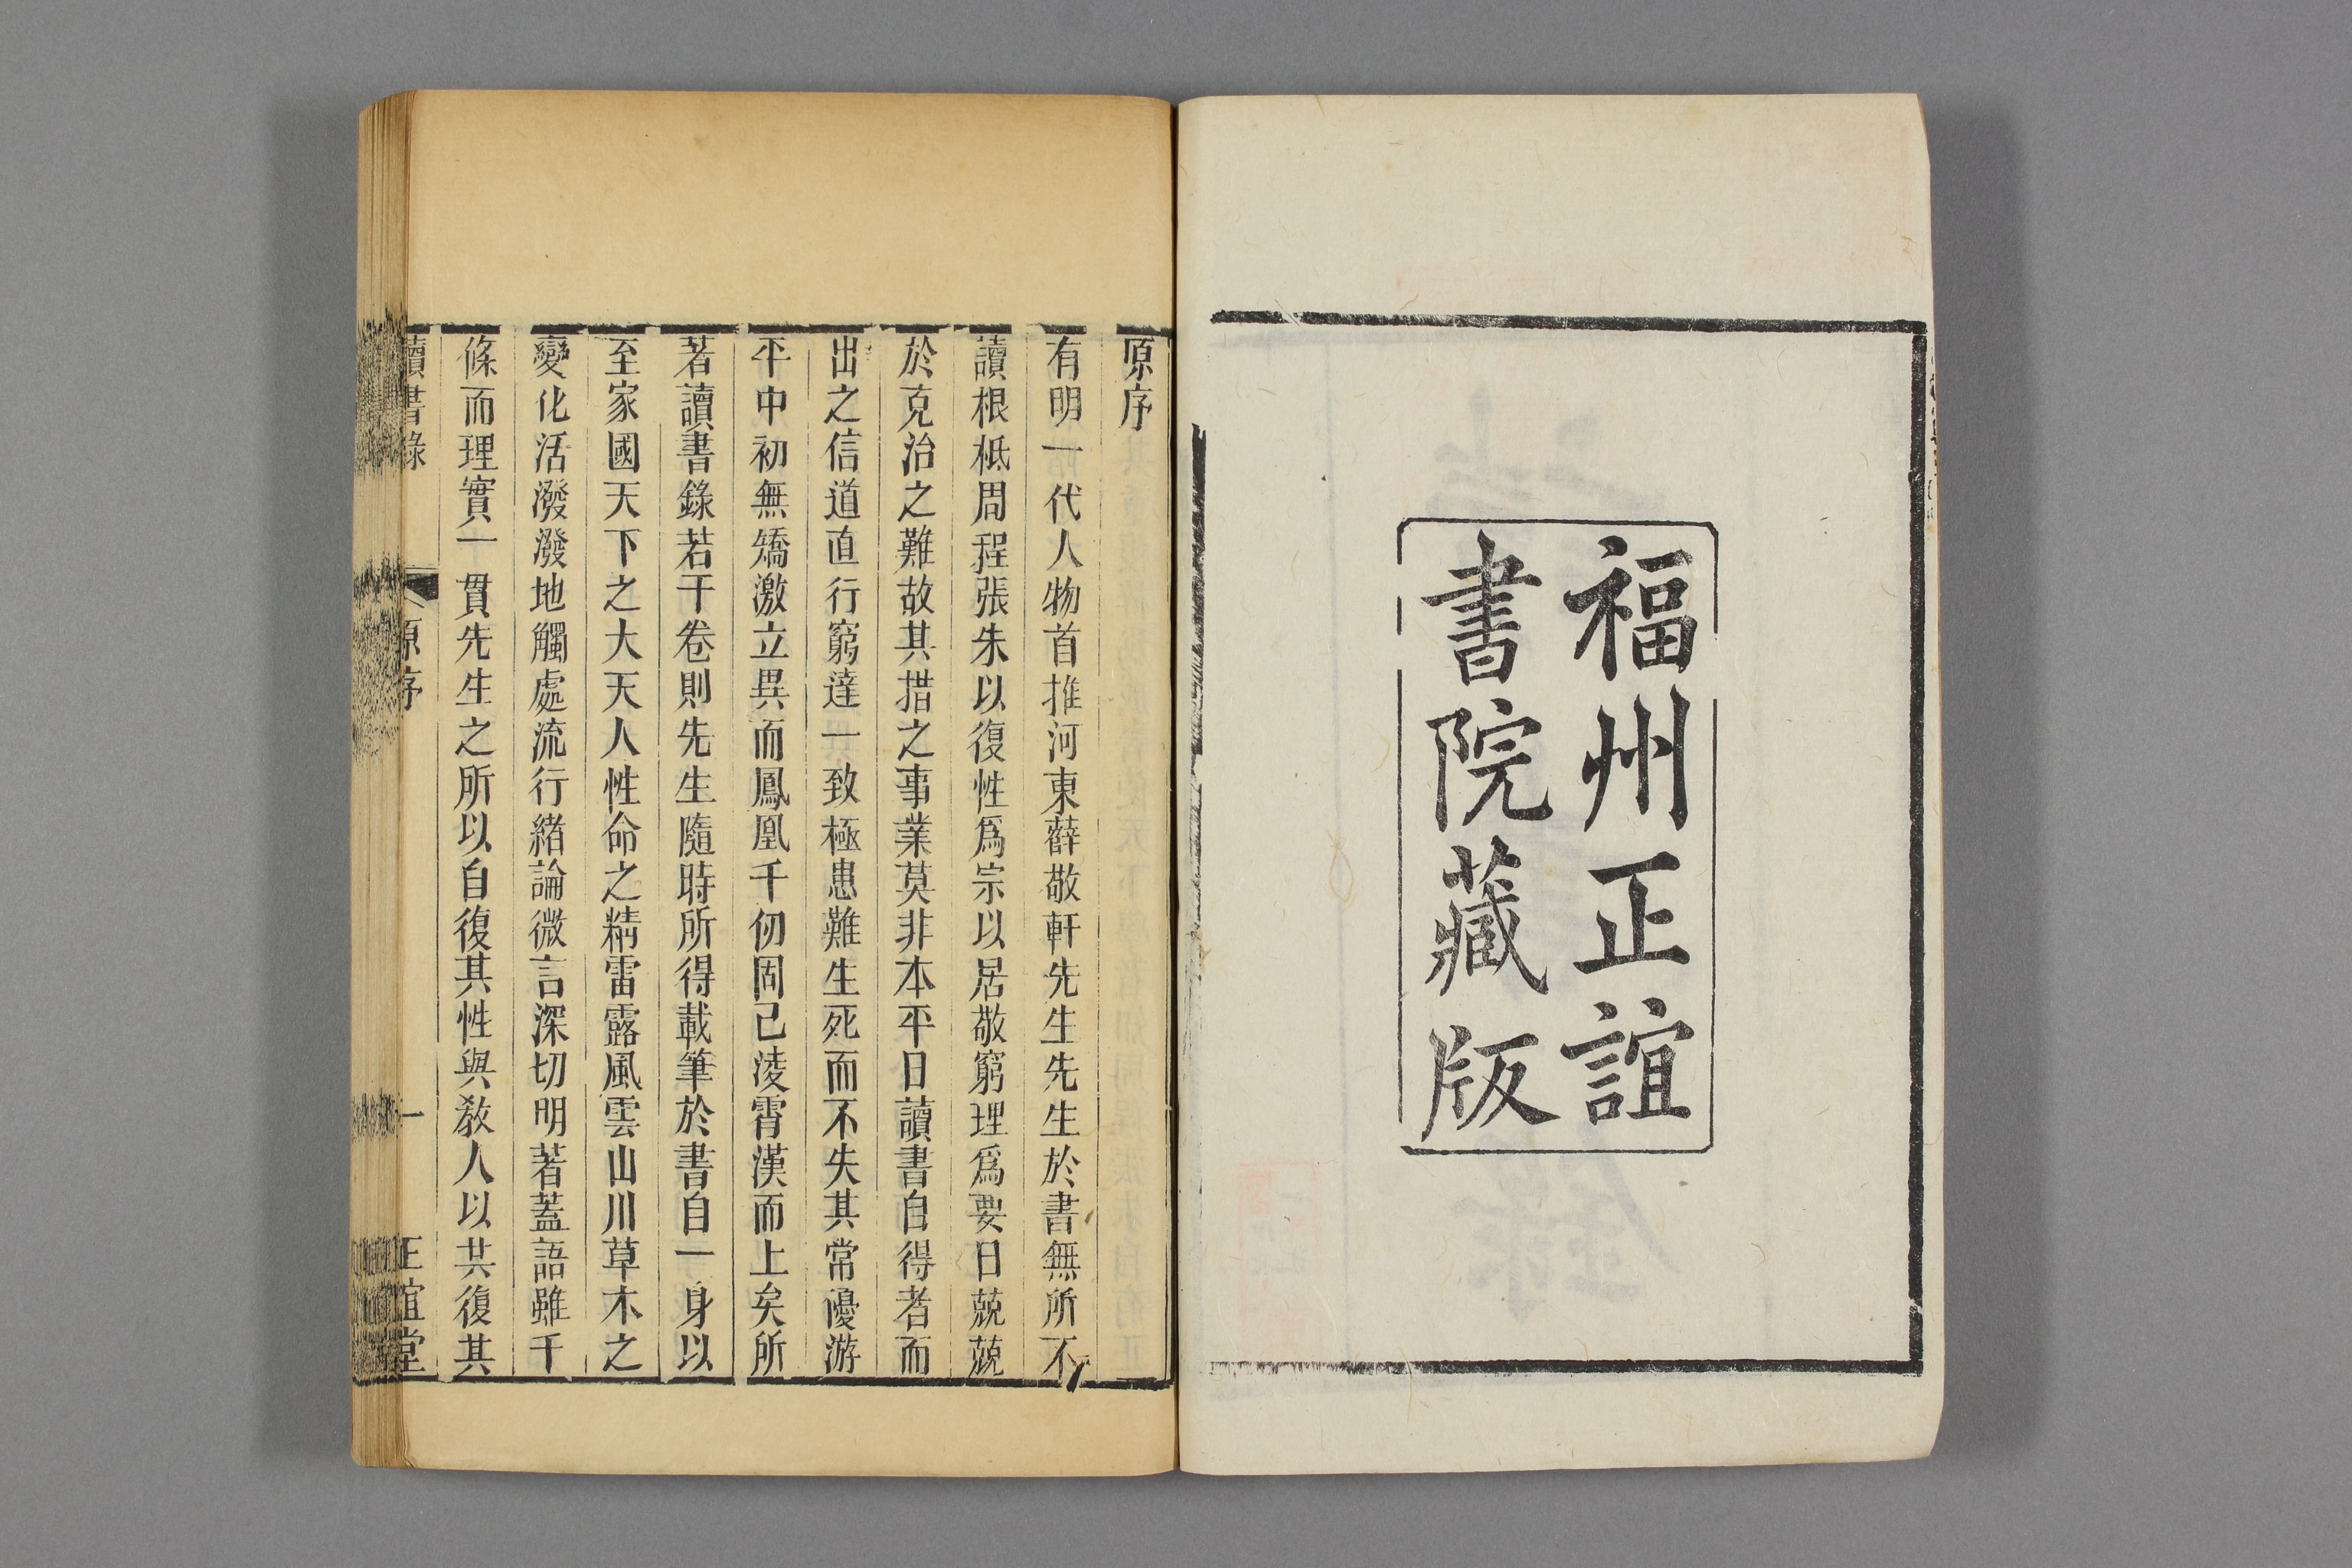 福州正誼
書院藏版
原序
有明一代人物首推河東薛敬軒先生先生於書無所不
讀根柢周程張朱以復性爲宗以居敬窮理爲要日兢兢
於克治之難故其措之事業莫非本平日讀書自得者而
出之信道直行窮達一致極患難生死而不失其常優游
平中初無矯激立異而鳳凰千仞固已淩霄漢而上矣所
著讀書錄若干卷則先生隨時所得載筆於書自一身以
至家國天下之大天人性命之精雷露風雲山川草木之
變化活潑潑地觸處流行緒論微言深切明著蓋語雖千
條而理實一貫先生之所以自復其性與教人以共復其
讀書錄 原序 一 正誼堂